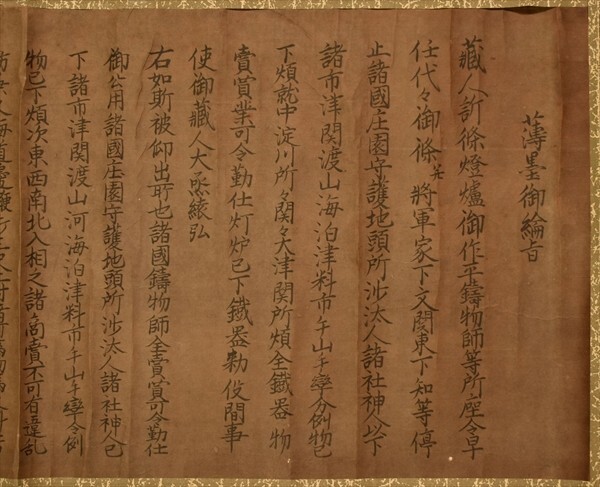 薄墨御綸旨
蔵人所條燈爐御作手鑄物師等所座令早
任代々御條并將軍家下文関東下知等停
止諸國庄園守護地頭所沙汰人諸社神人以下
諸市津関渡山海泊津料市手山手率分例物已
下煩就中淀川所々関々大津関所煩全鐵器物
賣買業可令勤仕灯炉已下鐵器勅役間事
使御蔵人大 紀弘
右如斯被仰出所也諸國鑄物師全賣買可令勤仕
御公用諸國庄園守護地頭所沙汰人諸社神人已
下諸市津関渡山河海泊津料市手山手率令例
物已下煩次東西南北入相之諸商賣不可有違乱